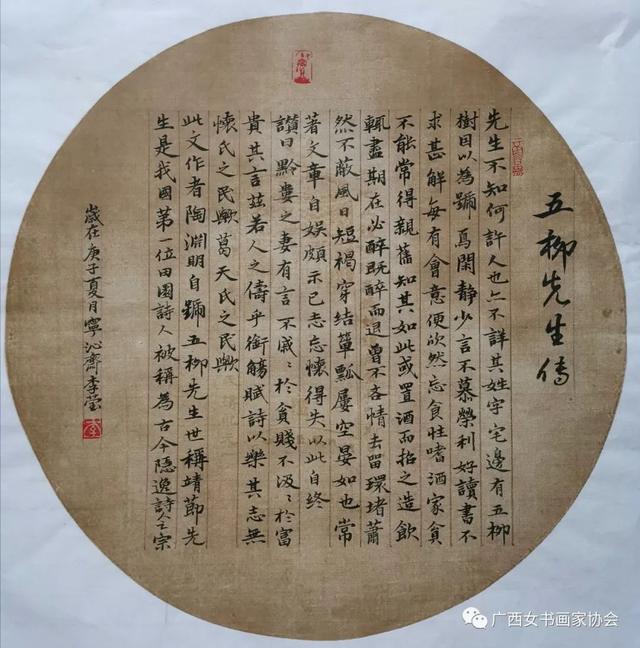 五柳先生傳
先生不知何許人也亦不詳其姓字宅邊有五柳
樹因以為號焉閑静少言不慕榮利好讀書不
求甚解每有會意便欣然忘食性嗜酒家貧
不能常得親舊知其如此或置酒而招之造飲
輒盡期在必醉既醉而退曾不吝情去留環堵蕭
然不蔽風日短褐穿結簞瓢屢空晏如也常
著文章自娱頗示己志忘懷得失以此自終
讚曰黔婁之妻有言不戚〻於貧賤不汲〻於富
貴其言茲若人之儔乎銜觴賦詩以樂其志無
懷氏之民歟葛天氏之民歟
此文作者陶淵明自號五柳先生世稱靖節先
生是我國第一位田園詩人被稱為古今隱逸詩人之宗
歲在庚子夏月寧沁齋李瑩
李
广西女书画家协会